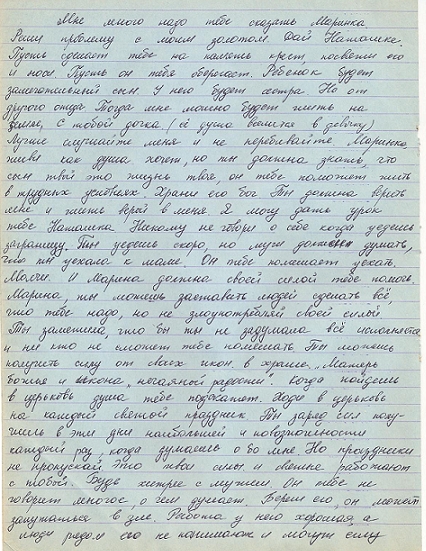 Мне много надо тебе сказать Маринка
Реши проблему с моим золотом. Дай Наташке.
Пусть сделает тебе на память крест, посвети его
и носи. Пусть он тебя оберегает. Ребенок будет
замечательный сын. У него будет сестра Но от
другого отца Тогда мне можно будет жить на
земле, с тобой, дочка (её душа вселится в девочку)
Лучше слушайте меня и не перебивайте. Маринка
живи как душа хочет, но ты должна знать, что
сын твой это жизнь твоя, он тебе поможет жить
в трудных условиях. Храни его бог Ты должна верить
мне и жить верой в меня Я могу дать урок
тебе Наташка Никому не говори о себе когда уедешь
заграницу. Ты уедешь скоро, но муж должен думать,
что ты уехала к маме. Он тебе помешает уехать.
Молчи. И Марина должна своей силой тебе помочь.
Марина, ты можешь заставить людей сделать всё
что тебе надо, но не злоупотребляй своей силой.
Ты заметила, что бы ты не задумала всё исполняется
и ни кто не сможет тебе помешать Ты можешь
получить силу от икон. в храме. "Матерь
божья и икона "нечаянной радости". Когда пойдешь
в церковь душа тебе подскажет. Ходи в церковь
на каждый святой праздник. Ты заряд сил полу-
чишь в эти дни наибольший и
каждый раз, когда думаешь о бо мне. Но праздники
не пропускай Это твои силы и работают
с тобой. Будь хитрее с мужем. Он тебе не
говорит многое, о чем думает. Береги его, он может
запутаться в зле. Работа у него хорошая, а
люди рядом его не понимают и могут ему